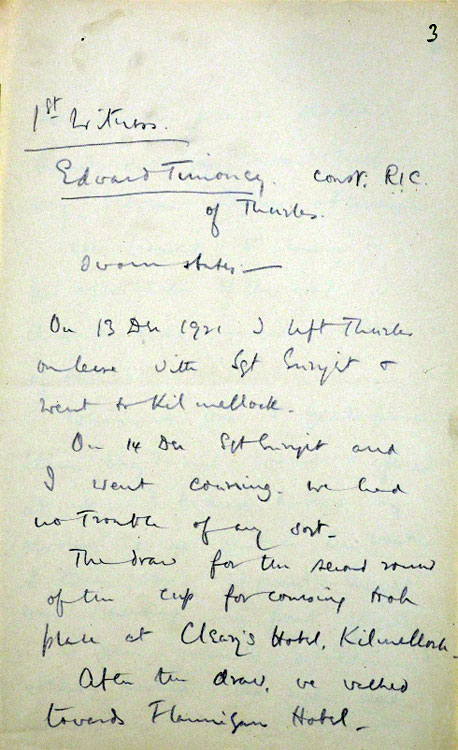 3
1st Witness.
Edward Timoney. const. RIC.
of Thurles.
Sworn states —
On 13 Dec 1921 I left Thurles
on leave with Sgt Enright &
went to Kilmallock.
On 14 Dec Sgt Enright and
I went coursing. we had
no trouble of any sort.
The draw for the second round
of the cup for coursing took
place at Cleary's Hotel, Kilmallock.
After the draw, we walked
towards Flannigan Hotel.